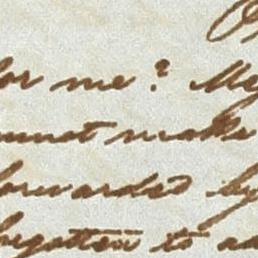 for me? Me
cannot make
forwarded by
forgotten to ad